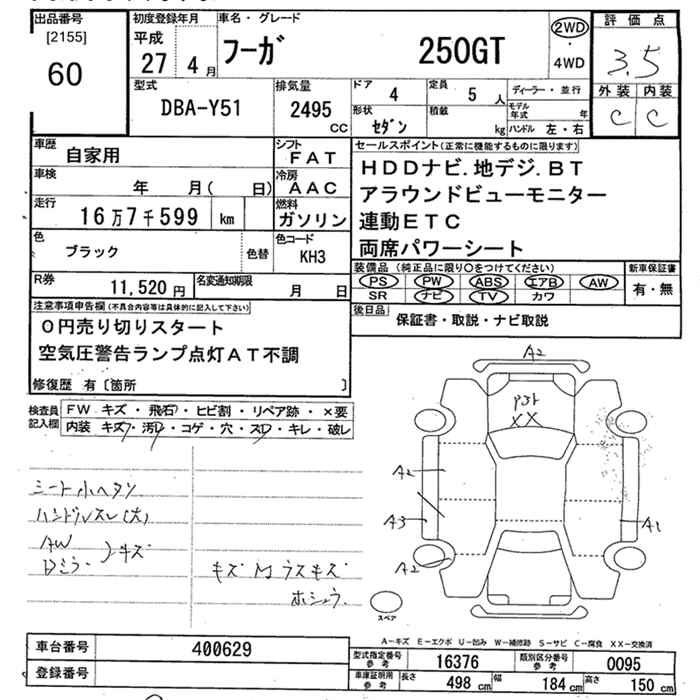 出品番号 初度登録年月 車名・グレード 評価点
[2155]
60
平成
27 4月
フーガ 250GT
2WD
・
4WD
3.5
外装 内装
C C
型式
DBA-Y51
排気量
2495
CC
ドア 4
定員 5人
ディーラー・並行
形状 セダン
積載 kg
モデル年式 年
ハンドル 左・右
車歴 自家用
シフト FAT
車検 年 月( 日)
冷房 AAC
走行 16万7千599 km
燃料 ガソリン
色 ブラック 色替
色コード KH3
R券 11,520円
名変通知期限 月 日
セールスポイント(正常に機能するものに限ります)
HDDナビ.地デジ.BT
アラウンドビューモニター
連動ETC
両席パワーシート
装備品 (純正品に限り○をつけてください)
新車保証書
PS PW ABS エアB AW
SR ナビ TV カワ
有・無
後日品
保証書・取説・ナビ取説
注意事項申告欄(不具合内容等は具体的に記入して下さい)
0円売り切りスタート
空気圧警告ランプ点灯AT不調
修復歴 有〔箇所 〕
検査員記入欄
FW キズ・飛石・ヒビ割・リペア跡・×要
内装 キズ・汚れ・コゲ・穴・スレ・キレ・破レ
シート小ヘタリ
ハンドルスレ(大)
AW
Dミラー
キズ
A2
XX
A2
A3
A2
A1
スペア
A-キズ E-エクボ U-凹み W-補修跡 S-サビ C-腐食 XX-交換済
車台番号 400629
登録番号
型式指定番号 参考 16376
類別区分番号 参考 0095
車庫証明用 参考 長さ 498cm 幅 184cm 高さ 150cm